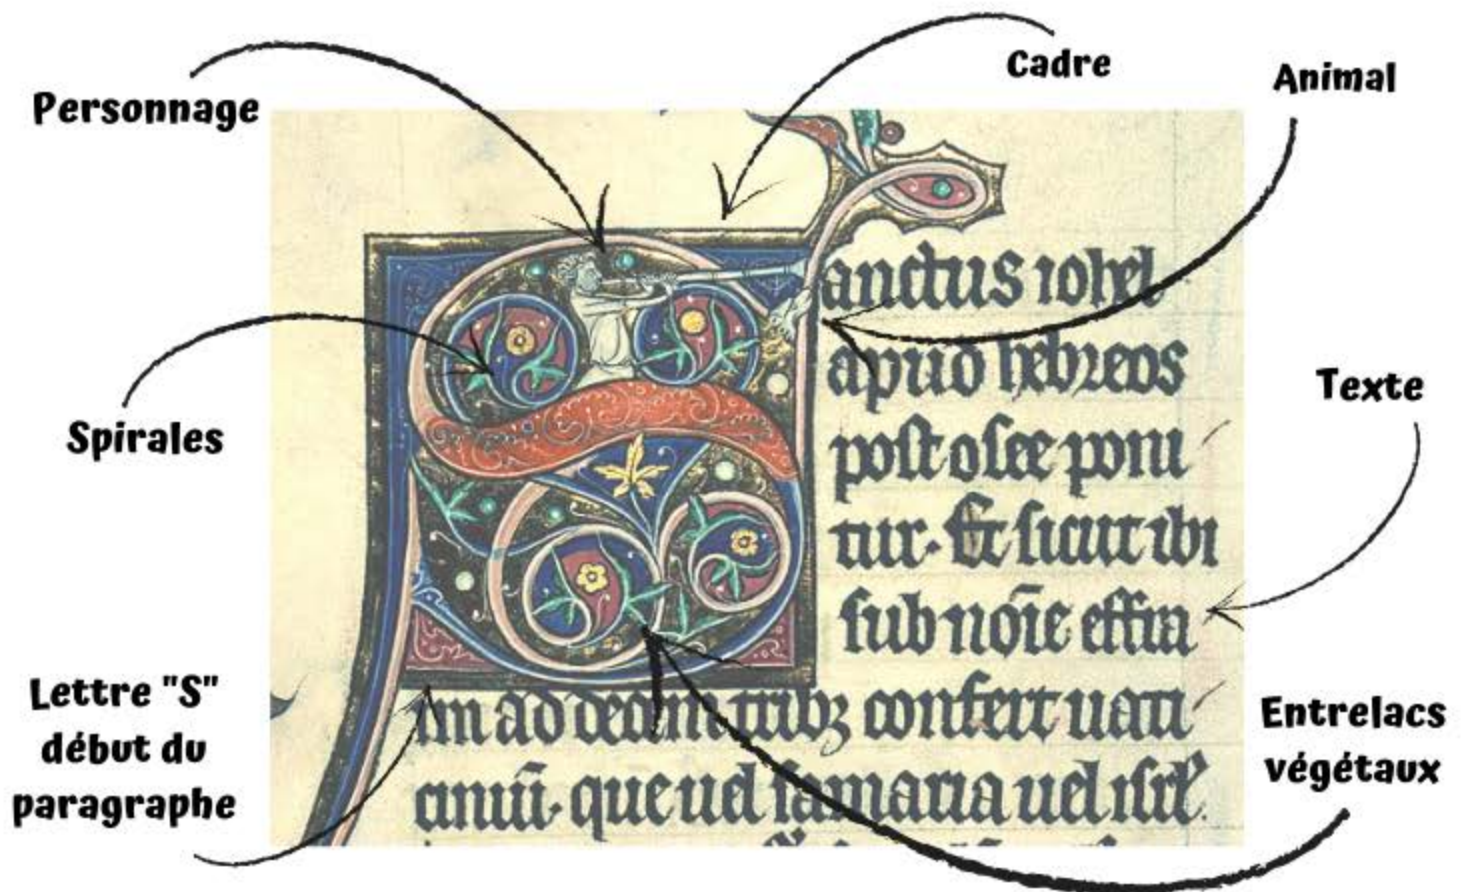 Personnage
Cadre
Animal
Spirales
Texte
Lettre "S"
début du
paragraphe
Entrelacs
végétaux
anctus iohel
apud hebreos
post osee poni
tur. Et sicut ibi
sub noīe effra
im ad decem tribꝫ confert uati
ciniū. que uel samaria uel isrl